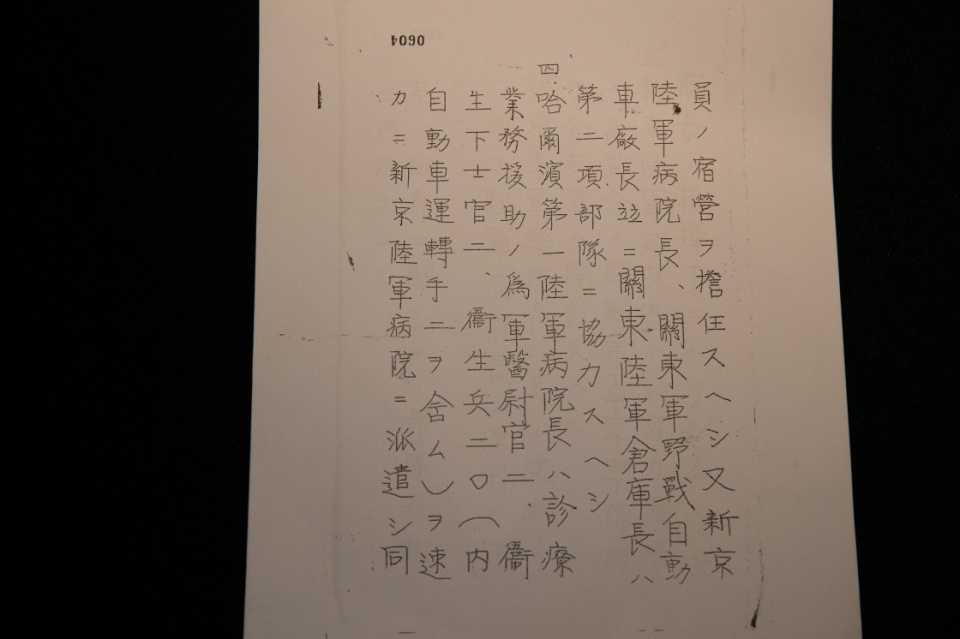 0604
員ノ宿營ヲ擔任スヘシ又新京
陸軍病院長、關東軍野戰自動
車廠長竝ニ關東陸軍倉庫長ハ
第二項部隊ニ協力スヘシ
四、哈爾濱第一陸軍病院長ハ診療
業務援助ノ爲軍醫尉官二、衞
生下士官二、衞生兵二〇（内
自動車運轉手二ヲ含ム）ヲ速
カニ新京陸軍病院ニ派遣シ同